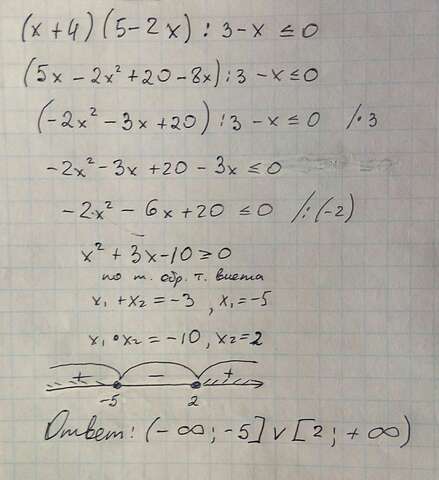 (x+4)(5-2x):3-x ≤0
(5x-2x²+20-8x):3-x≤0
(-2x²-3x+20):3-x≤0 /·3
-2x²-3x+20-3x≤0
-2x²-6x+20 ≤0 /:(-2)
x²+3x-10≥0
по т. обр. т. Виета
x₁+x₂=-3, x₁=-5
x₁·x₂=-10, x₂=2
+ - +
-5 2
Ответ: (-∞;-5]∨[2;+∞)